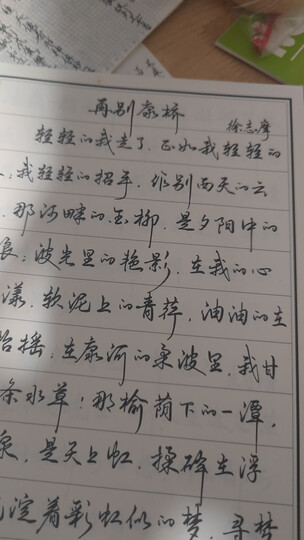 再别康桥
徐志摩
轻轻的我走了，正如我轻轻的
，我轻轻的招手，作别西天的云
，那河畔的金柳，是夕阳中的
娘；波光里的艳影，在我的心
漾，软泥上的青荇，油油的在
招摇；在康河的柔波里，我甘
条水草！那榆荫下的一潭，
泉，是天上虹，揉碎在浮
沉淀着彩虹似的梦，寻梦